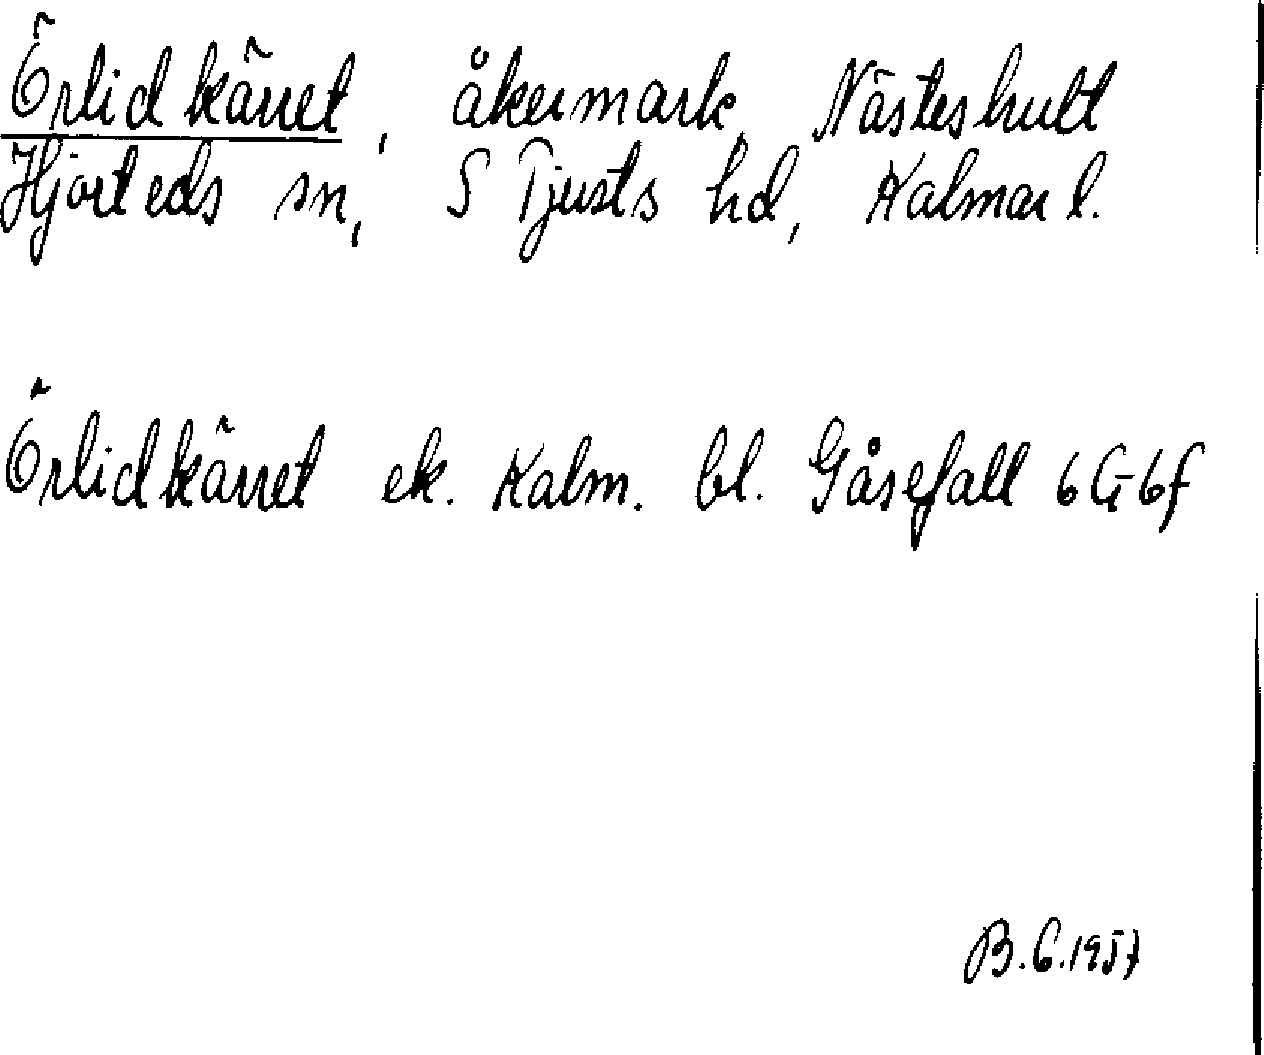 Örlidkärret, åkermark, Nästeshult
Hjorteds sn, S Tjusts hd, Kalmar l.
Örlidkärret ek. Kalm. bl. Gåsefall 6G-6f
B.G.1957